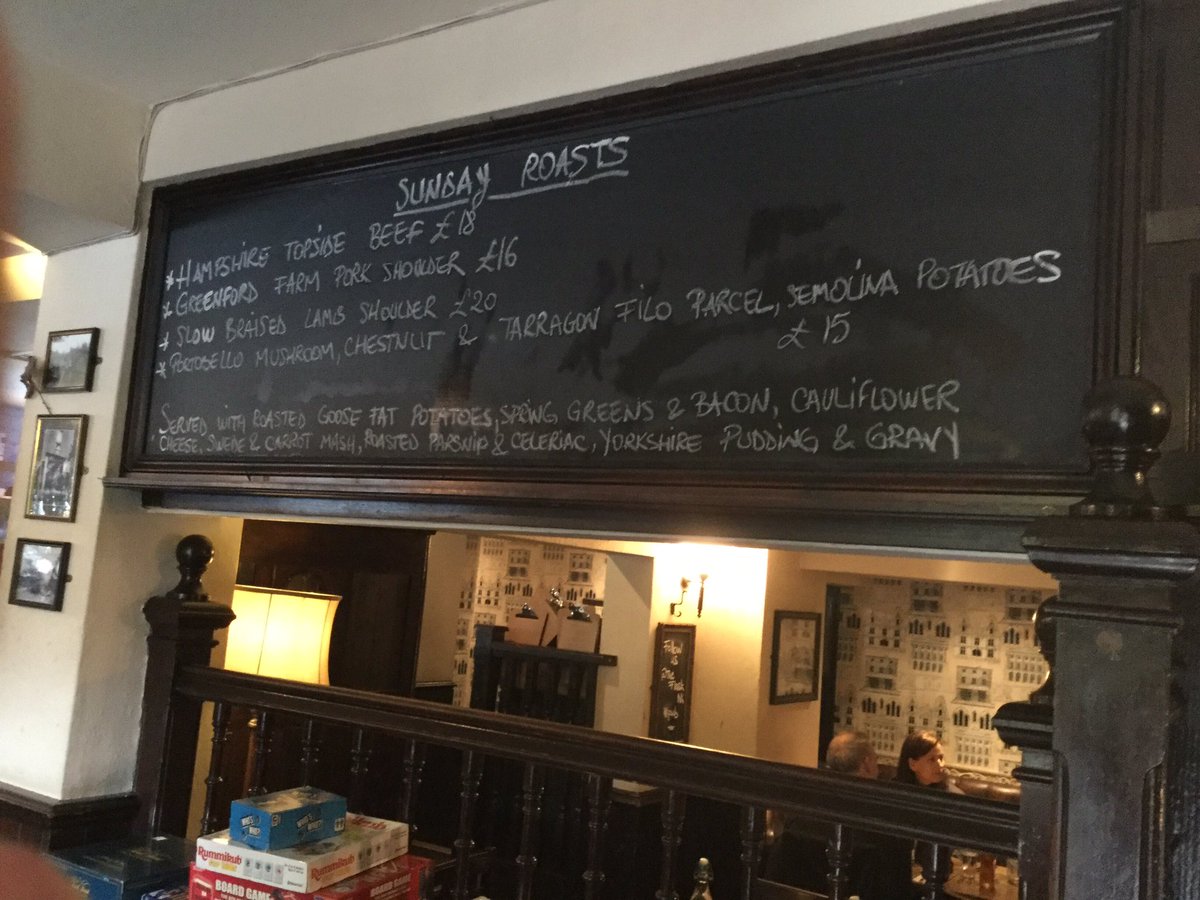 SUNDAY ROASTS
* HAMPSHIRE TOPSIDE BEEF £18
* GREENFORD FARM PORK SHOULDER £16
* SLOW BRAISED LAMB SHOULDER £20
* PORTOBELLO MUSHROOM, CHESTNUT & TARRAGON FILO PARCEL, SEMOLINA POTATOES
£15
SERVED WITH ROASTED GOOSE FAT POTATOES, SPRING GREENS & BACON, CAULIFLOWER
CHEESE, SWEDE & CARROT MASH, ROASTED PARSNIP & CELERIAC, YORKSHIRE PUDDING & GRAVY
Follow
us
Rummikub
BOARD GAME
BOARD GAME